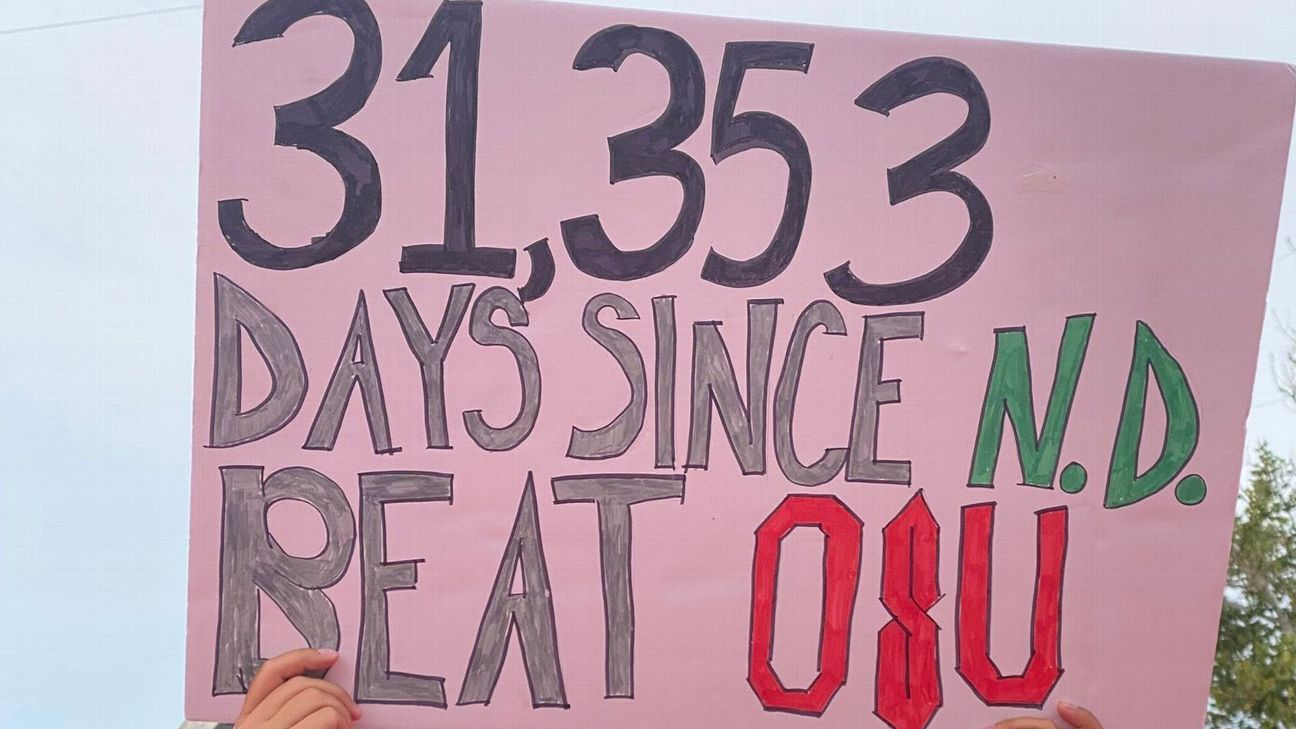 31,353
DAYS SINCE N.D.
BEAT OSU